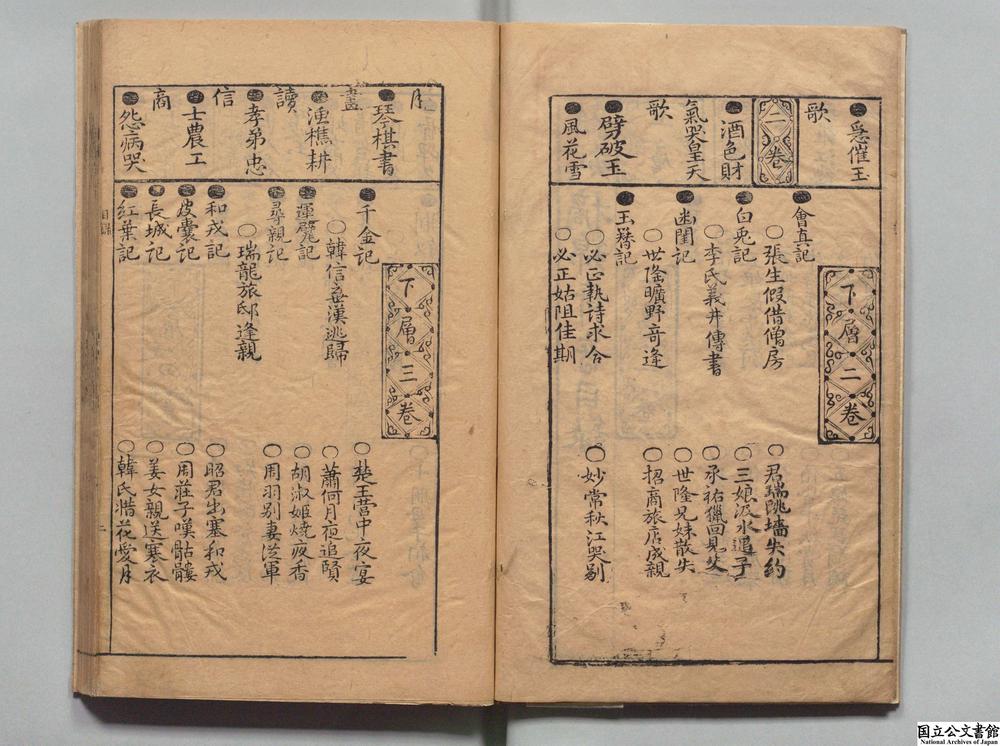 急催玉
歌
二卷
酒色財
氣哭皇天
歌
劈破玉
風花雪
下層二卷
會真記
○張生假借僧房
○君瑞跳墻失約
白兎記
○三娘汲水遇子
○李氏義井傳書
○承祐獵回見父
幽閨記
○世隆兄妹散失
○世隆曠野竒逢
○招商旅店成親
玉簪記
○必正執詩求合
○妙常秋江哭别
○必正姑阻佳期
月
琴棋書
畫
漁樵耕
讀
孝弟忠
信
士農工
商
怨病哭
下層三卷
千金記
○楚王營中夜宴
○韓信棄漢逃歸
○蕭何月夜追賢
運甓記
○胡淑姬燒夜香
尋親記
○周羽别妻從軍
○瑞龍旅邸逢親
和戎記
○昭君出塞和戎
皮囊記
○周莊子嘆骷髏
長城記
○姜女親送寒衣
紅葉記
○韓氏惜花愛月
目録
二
国立公文書館
National Archives of Japan